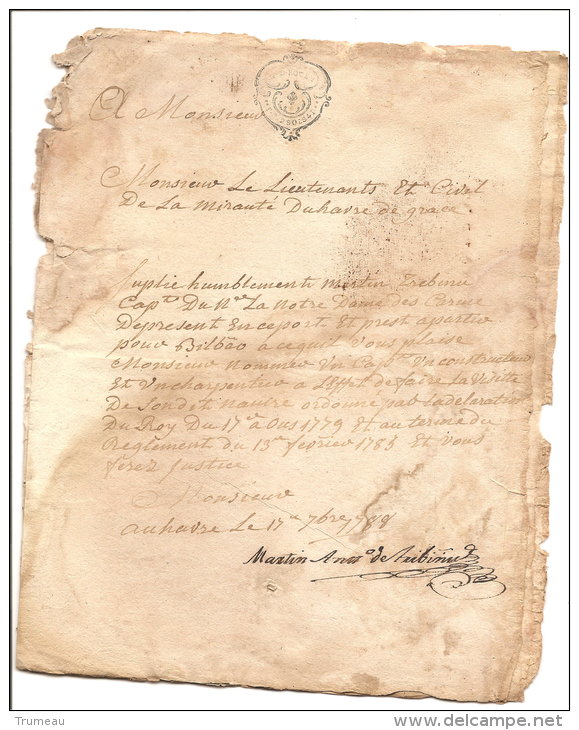 A Monsieur
Monsieur Le Lieutenants Et Civel
De La mirauté Duhavre de grace
Suplie humblement Martin Trebinu
Cap^ne Du N^re La Notre Dame des Carme
Depresent Enceport Et prest apartir
pour Bilbão acequil vous plaise
Monsieur Nommer Un Cap^ne Un constructeur
Et Un charpentier a L'Effet de faire La Visite
De Sondit navire ordonné par La declaration
Du Roy Du 17^e Ous 1779 Et au terme du
Reglement du 13^e fevrier 1785 Et vous
ferez justice
Monsieur
auhavre Le 17^e 7bre 1788
Martin Anto de Tribinu
Trumeau
www.delcampe.net